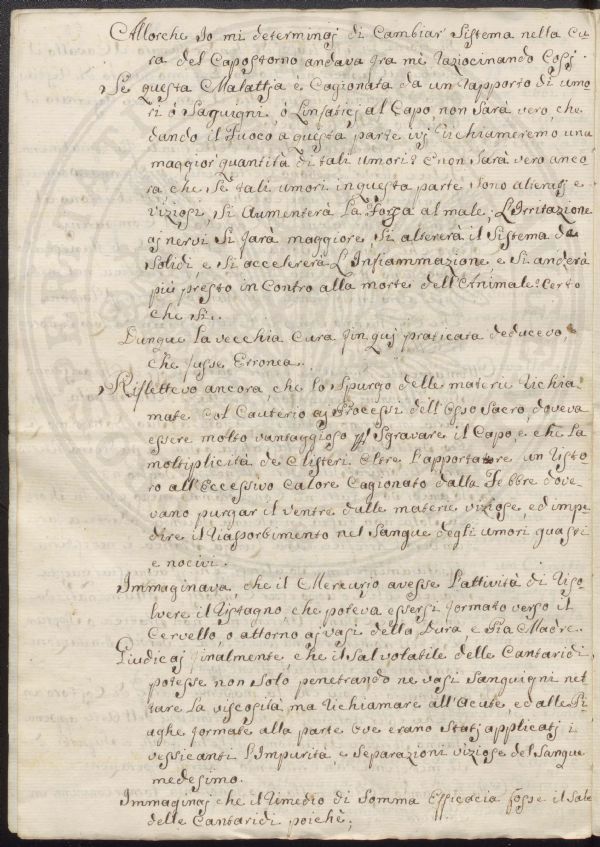 Allorche Jo mi determinaj di Cambiar Sistema nella Cu
ra del Capostorno andava fra mè raziocinando Cosj.
Se questa Malattja è Cagionata da un rapporto di umo
ri ò Saguigni, ò Linfaticj al Capo non Sarà vero, che
dando il Fuoco a questa parte ivj richiameremo una
maggior quantità di tali umori? E non Sarà vero anco
ra che Se tali umori in questa parte Sono alteratj e
viziosi, Si Aumenterà La Forza al male, L'Irritazione
aj nervi Si farà maggiore, Si altererà il Sistema de
Solidi e Si accelererà L'Infiammazione e Si anderà
più presto in Contro alla morte dell'Animale? Certo
che Sì.
Dunque La vecchia Cura finquj praticata deducevo,
che fusse Erronea.
Riflettevo ancora, che lo Spurgo delle materie richia
mate Col Cauterio aj Processi dell'Osso Sacro, doveva
essere molto vantaggioso p Sgravare il Capo, e che La
moltiplicità de Clisteri Oltre L'apportatore un risto
ro all'Eccessivo Calore Cagionato dalla Febbre dove
vano purgar il ventre dalle materie viziose, ed impe
dire il riassorbimento nel Sangue degli umori guasti
e nocivi.
Immaginava, che il Mercurjo avesse L'attività di riso
lvere il ristagno, che poteva essersi formato verso il
Cervello, o attorno aj vasi della Dura e Pia Madre.
Giudicaj finalmente, che il Sal volatile delle Cantaridi
potesse non Solo penetrando ne vasi Sanguigni net
tare La viscosità, ma richiamare all'Ocute, ed alle Pi
aghe formate alla parte Ove erano Statj applicatj i
vessicanti L'Impurità e Separazioni viziose del Sangue
medesimo.
Immaginaj che il rimedio di Somma Efficacia fosse il Sale
delle Cantaridi poichè,